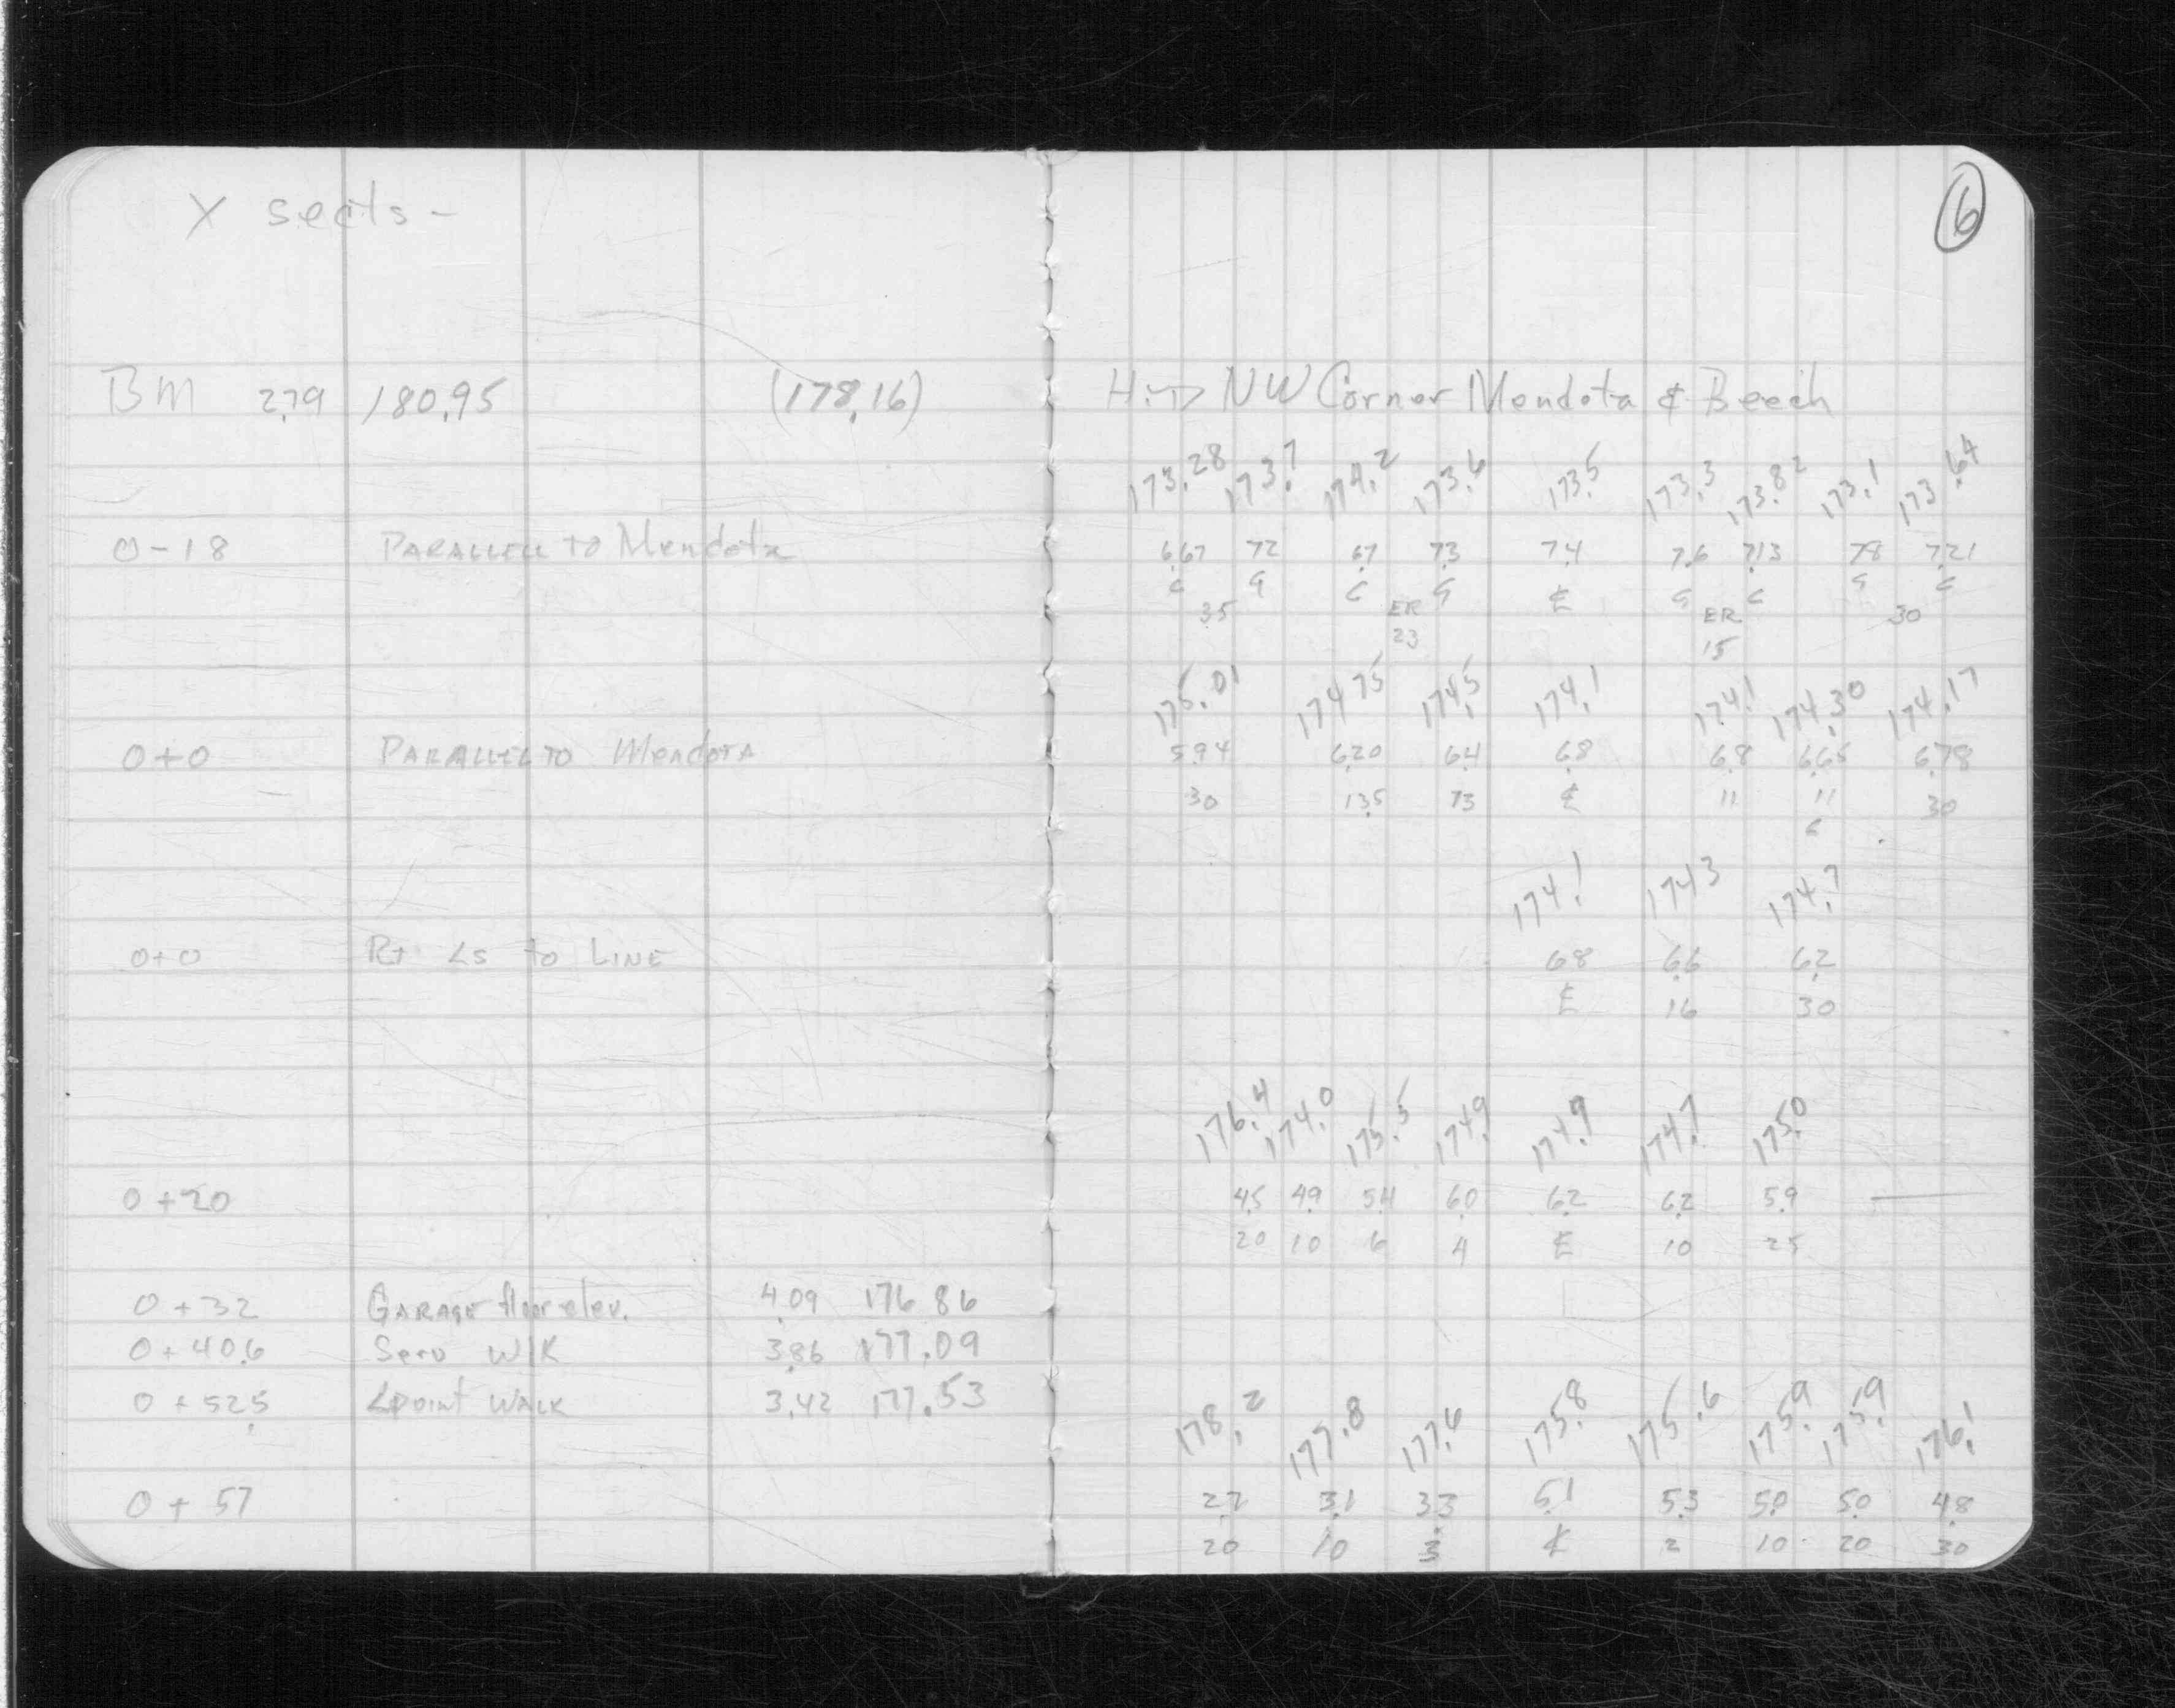 X sects-
6
BM 2.79 180.95 (178.16) Hyd NW Corner Mendota & Beech
173.28 173.7 174.2 173.6 173.5 173.3 173.82 173.1 173.64
0-18 PARALLELL TO Mendota 6.67 7.2 6.7 7.3 7.4 7.6 7.13 7.8 7.21
C G C G ℄ G C G C
35 ER ER 30
23 15
175.01 174 75 174.5 174.1 174.1 174.30 174.17
0+0 PARALLEL TO Mendota 5.94 6.20 6.4 6.8 6.8 6.65 6.78
30 13.5 13 ℄ 11 11 30
C
174.1 174 3 174.7
0+0 Rt ∠s to LINE 6.8 6.6 6.2
℄ 16 30
176.4 174.0 175.5 174.9 174.9 174.7 175.0
0+20 4.5 4.9 5.4 6.0 6.2 6.2 5.9
20 10 6 4 ℄ 10 25
0+32 GARAGE floor elev. 4.09 176 86
0+40.6 Serv WlK 3.86 177.09
0+52.5 ∠point WALK 3.42 177.53
178.2 177.8 177.6 175.8 175.6 175.9 175.9 176.1
0+57 2.7 3.1 3.3 5.1 5.3 5.0 5.0 4.8
20 10 3 ℄ 2 10 20 30